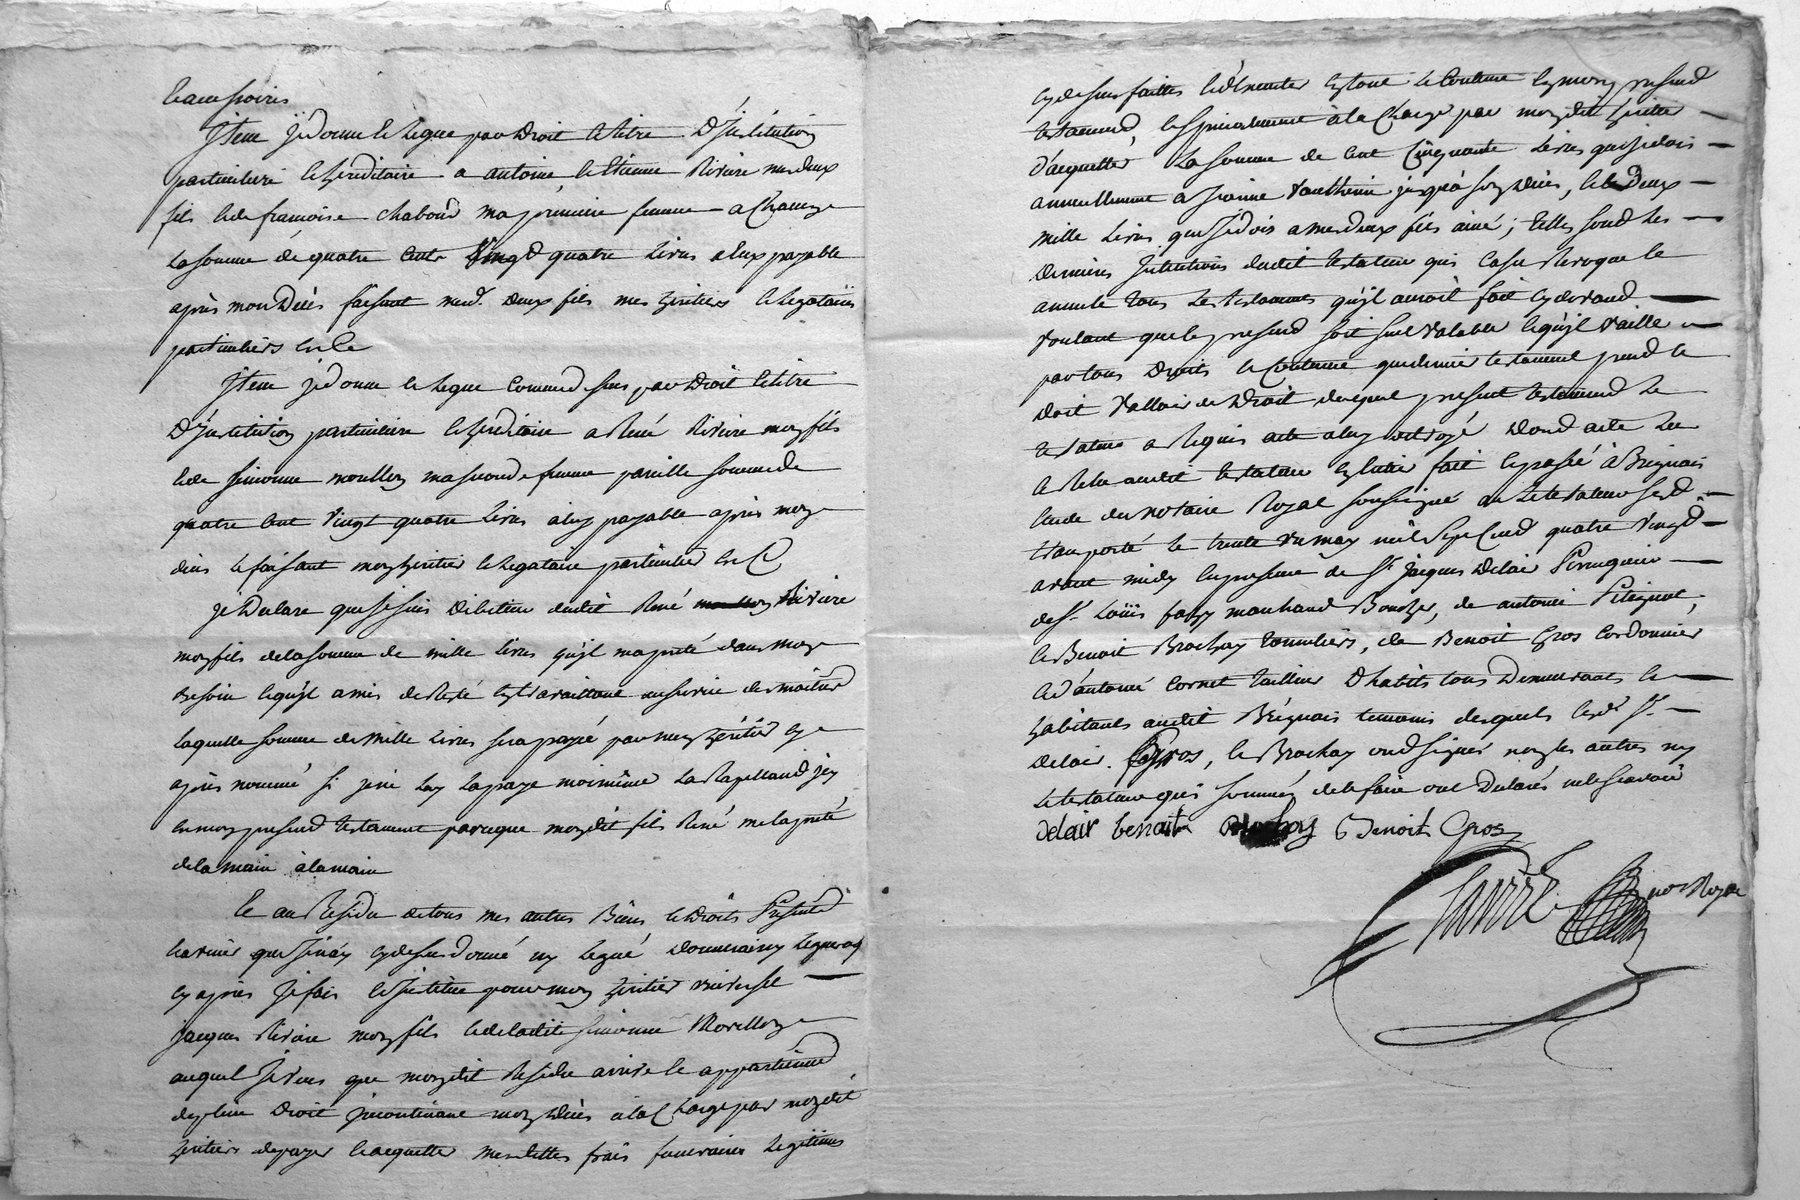 accessoires
Item je donne et legue par droit et titre D'jnstitution
particuliere et hereditaire a antoine et Etienne Riviere mes deux
fils et de françoise chaboud ma premiere femme a chacun
la somme de quatre cent vingt quatre livres a eux payable
après mon deces faisant mesd. deux fils mes heritiers et legataires
particuliers en ce
Item je donne et legue comme dessus par droit et titre
D'jnstitution particuliere et hereditaire a René Riviere mon fils
et de simonne morellon ma seconde femme pareille somme de
quatre cent vingt quatre livres a luy payable après mon
deces le faisant mon heritier et legataire particulier en ce
je declare que je suis debiteur dudit René Riviere
mon fils de la somme de mille livres qu'jl ma preté dans mon
besoin et qu'jl a mis de resté en travaillant au service des maitres
laquelle somme de mille livres sera payé par mon heritier cy
après nommé si je ne luy la paye moi même la Rapellant jcy
en mon present testament parceque mon dit fils René me la preté
de la main à la main
Et au Residu de tous mes autres Biens et Droits presents
et avenir que je n'ay cy dessus donné ny legué donneray ny legueray
cy après je fais et jnstitue pour mon heritier universel
jacques Riviere mon fils et de ladite simonne Morellon
auquel je veux que mon dit Residu arrive et appartienne
de plein droit jncontinant mon deces a la charge par mon dit
heritier de payer et acquitter mes dettes frais funeraires legitimes
cy dessus faittes et d'Executer en tout le contenu en mon present
testament, et specialement à la charge par mon dit heritier
d'acquitter la somme de cent cinquante livres que je dois
annuellement a jeanne vautherin jusqu'à son deces, et les deux
mille livres que je dois a mes deux fils ainé; telles sont les
dernieres jntentions dudit testateur qui casse Revoque et
annulle tous les testaments qu'jl auroit fait cy devant
voulant que le present soit seul valable et qu'jl vaille
par tous droits et coutume que dernier testament peut et
doit valloir de droit duquel present testament le
testateur a Requis acte a luy octroyé dont acte lu
et Relu audit testateur en entier fait et passé à Brignais
Etude du notaire Royal soussigné ou le testateur s'est
transporté le trente un may mil sept cent quatre vingt
avant midy en presence de Sr. jacques Delair Perruquier
de Sr. Loüis fayy marchand Boucher, de antoine Pitiquet,
et Benoit Brochay tonneliers, de Benoit Gros cordonnier
et d'antoine cornet tailleur D'habits tous Demeurants et
habitants audit Brignais temoins desquels lesdt. Sr.
Delair. Gros, et Brochay ont signés non les autres ny
le testateur qui sommés de le faire ont Declarés ne le scavoir
delair benait Brochay Benoit Gros
not Royal